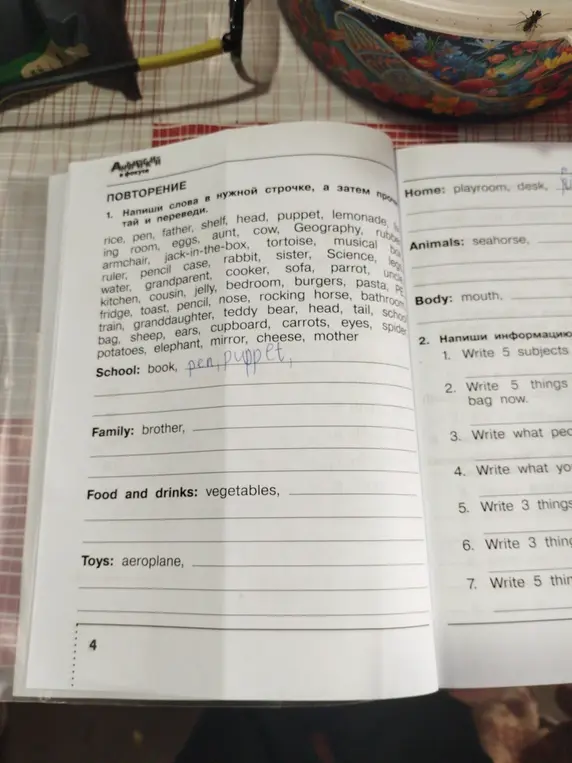 Английский
в фокусе
ПОВТОРЕНИЕ
1. Напиши слова в нужной строчке, а затем
тай и переведи.
rice, pen, father, shelf, head, puppet, lemonade,
ing room, eggs, aunt, cow, Geography, rubber
armchair, jack-in-the-box, tortoise, musical box
ruler, pencil case, rabbit, sister, Science, legs,
water, grandparent, cooker, sofa, parrot, uncle
kitchen, cousin, jelly, bedroom, burgers, pasta, PE
fridge, toast, pencil, nose, rocking horse, bathroom
train, granddaughter, teddy bear, head, tail, school
bag, sheep, ears, cupboard, carrots, eyes, spider
potatoes, elephant, mirror, cheese, mother
School: book, pen, puppet,
Family: brother,
Food and drinks: vegetables,
Toys: aeroplane,
4
Home: playroom, desk,
Animals: seahorse,
Body: mouth,
2. Напиши информацию
1. Write 5 subjects
2. Write 5 things
bag now.
3. Write what
4. Write what
5. Write 3 things
6. Write 3
7. Write 5